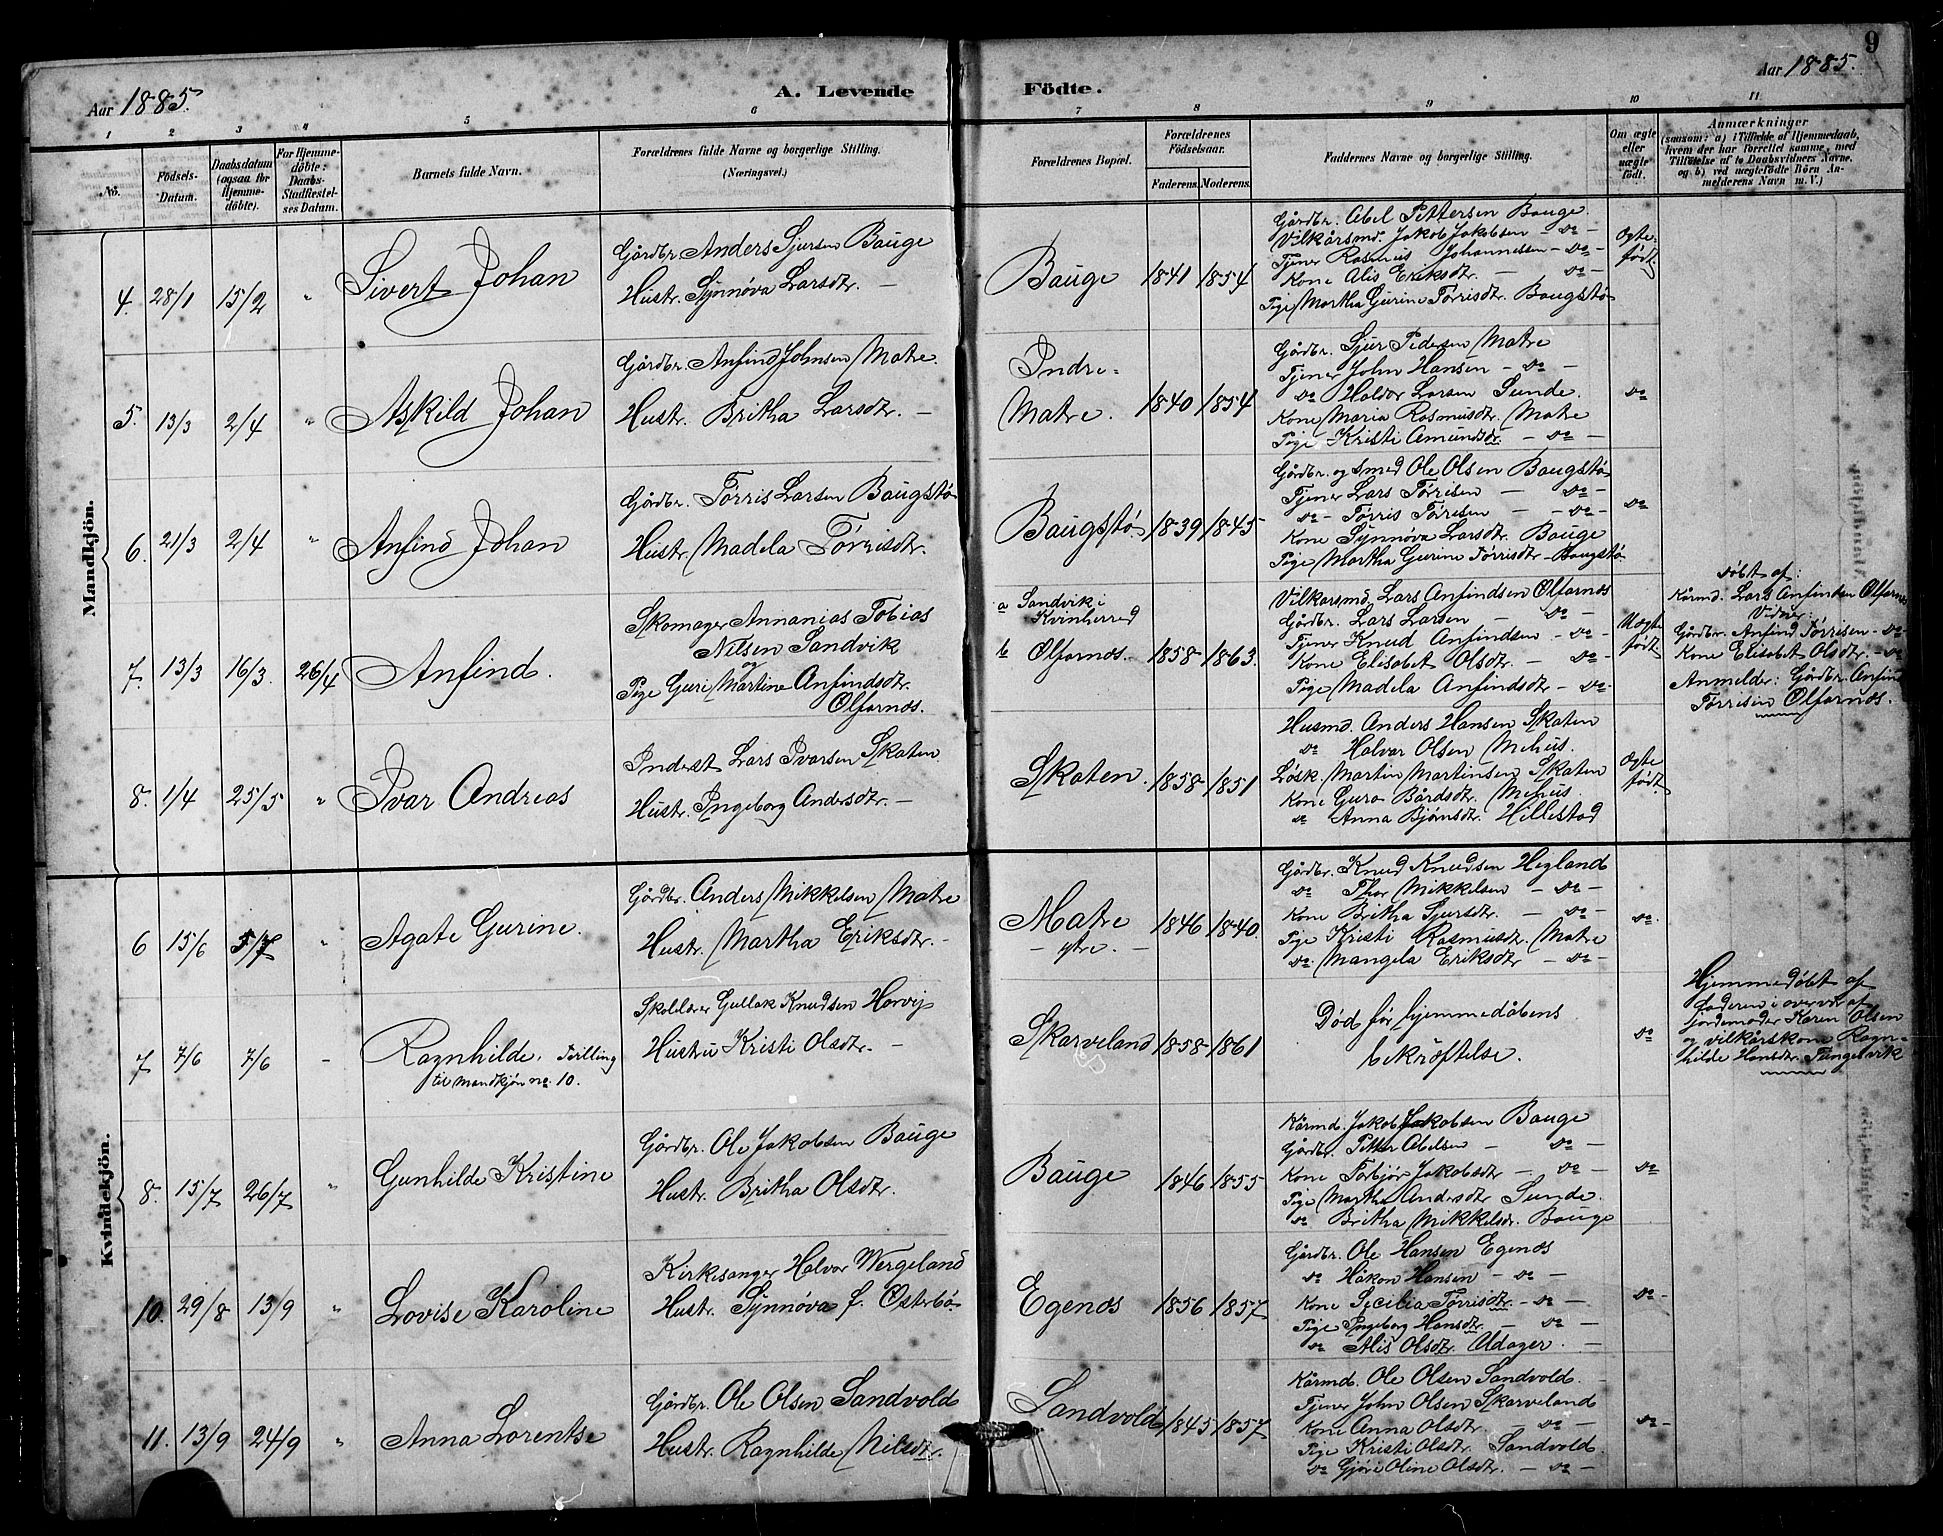 9
Aar 1885.
A. Levende Födte.
Aar 1885.
1 2 3 4 5 6 7 8 9 10 11
No.
Födsels-Datum.
Daabsdatum (ogsaa for Hjemme-döbte).
For Hjemme-döbte: Daabs-Stadfæstel-ses Datum.
Barnets fulde Navn.
Forældrenes fulde Navne og borgerlige Stilling.
(Næringsvei.)
Forældrenes Bopæl.
Forældrenes Födselsaar.
Faderens. Moderens.
Faddernes Navne og borgerlige Stilling.
Om ægte eller uægte født.
Anmærkninger
(saasom: a) i Tilfælde af Hjemmedaab,
hvem der har forrettet samme, med
Tilföielse af to Daabsvidners Navne,
og b) ved uægtefödte Börn An-
melderens Navn m. V.)
Mandkjön.
4. 28/1 15/2 " Sivert Johan
Gårdbr. Anders Sjursen Bauge
Hustr. Synnöva Larsdtr. —
Bauge 1841 1854
Gårdbr. Abel Pettersen Bauge.
Vilkårsmd. Jakob Jakobsen — do —
Tjener Rasmus Johannesen — do —
Kone Alis Eriksdtr. — do —
Pige Martha Gurine Törrisdtr. Baugstö
Ægte-
född
5. 13/3 2/4 " Askild Johan
Gårdbr. Anfind Johnsen Matre.
Hustr. Britha Larsdtr. —
Indre-
Matre. 1840 1854
Gårdbr. Sjur Pedersen Matre
Tjener John Hansen — do —
do Haldor Larsen Sunde.
Kone Maria Rasmusdtr. Matre
Pige Kristi Amundsdtr. — do —
do
6. 21/3 2/4 " Anfind Johan
Gårdbr. Törris Larsen Baugstö
Hustr. Madela Törrisdtr.
Baugstö 1839 1845
Gårdbr. og smed Ole Olsen Baugstö
Tjener Lars Törrisen — do —
do — Törris Törrisen — do —
Kone Synnöva Larsdtr. Bauge
Pige Martha Gurine Törrisdtr — Baugstö
do
7. 13/3 16/3. 26/4 Anfind.
Skomager Annanias Tobias
Nilsen Sandvik
og
Pige Guri Martine Anfindsdtr.
Ølfarnæs.
a Sandvik i
Kvinherred
b Ølfarnæs. 1858 1863.
Vilkarsmd. Lars Anfindsen Ølfarnæs
Gårdbr. Lars Larsen — do —
Tjener Knud Anfindsen — do —
Kone Elisabet Olsdtr. — do —
Pige Madela Anfindsdtr — do —
Uægte
född
Döbt af:
Kårmd. Lars Anfindsen Ølfarnæs
Vidner:
Gårdbr. Anfind Törrisen — do —
Kone Elisabet Olsdtr. — do
Anmelder: Gårdbr. Anfind
Törrisen Ølfarnæs.
8. 1/4 25/5 " Ivar Andreas
Inderst Lars Ivarsen Skaten
Hustr. Ingeborg Andersdtr. —
Skaten. 1858 1851
Husmd. Anders Hansen Skaten
do Halvor Olsen Mehus.
Løsk. Martin Martinsen Skaten
Kone Guro Bårdsdtr. Mehus.
do Anna Bjørnsdtr. Hillestad
Ægte
född
Kvindekjön.
6 15/6 5/7 " Agate Gurine.
Gårdbr. Anders Mikkelsen Matre
Hustr. Martha Eriksdtr. —
Matre
— ytre. — 1846 1840.
Gårdbr. Knud Knudsen Hegland
do Thor Mikkelsen — do —
Kone Britha Sjursdtr. — do —
Pige Kristi Rasmusdtr. Matre
do Mangela Eriksdtr — do —
do
7 7/6 7/6 — Ragnhilde. Tvilling
til mandkjön no. 10.
Skolelærer Gullak Knudsen
Hustru Kristi Olsdtr. —
Skarveland 1858 1861
Død før hjemmedåbens
bekræftelse.
do
Hjemmedöbt af
faderen i overvær af
jordemoder Karen Olsen
og vilkårskone Ragn-
hilde Hansdtr. Tungesvik
8. 15/7 26/7 " Gunhilde Kristine
Gårdbr. Ole Jakobsen Bauge
Hustr. Britha Olsdtr.
Bauge 1846 1855
Kårmd. Jakob Jakobsen Bauge
Gårdbr. Petter Abelsen — do —
Kone Torbjør Jakobsdtr — do —
Pige Martha Andersdtr Sunde.
do Britha Mikkelsdtr. Bauge
do
10. 29/8 13/9 " Lovise Karoline
Kirkesanger Halvor Wergeland
Hustr. Synnöva f. Østerbö
Egenæs 1856 1857
Gårdbr. Ole Hansen Egenæs
do Håkon Hansen — do —
Kone Secilia Törrisdtr — do —
Pige Ingeborg Hansdtr. — do —
do Alis Olsdtr. —
do —
11. 13/9 24/9 " Anna Lorentse
Gårdbr. Ole Olsen Sandvold
Hustr. Ragnhilde Nilsdtr.
Sandvold 1845 1857
Kårmd. Ole Olsen Sandvold. —
Tjener John Olsen Skarveland
Kone Anna Olsdtr — do —
Pige Kristi Olsdtr. Sandvold.
do Gjöri Oline Olsdtr. — do —
do —